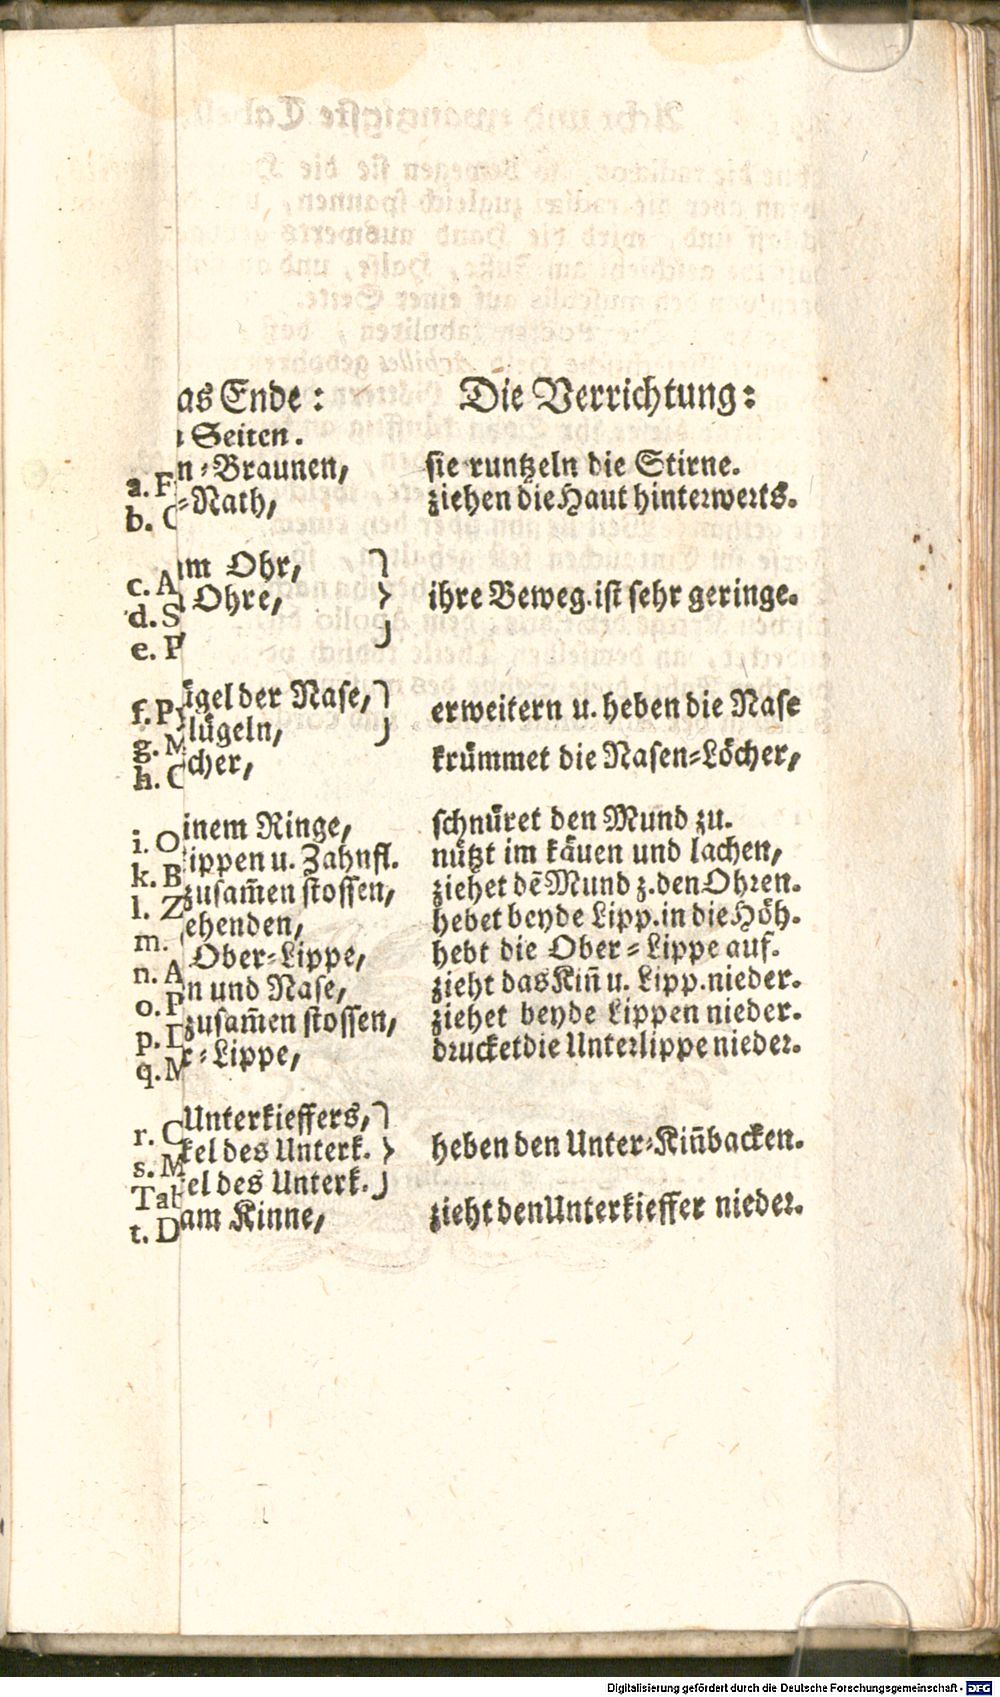 as Ende: Die Verrichtung:
Seiten.
a. F n-Braunen, sie runtzeln die Stirne.
b. C -Nath, ziehen die Haut hinterwerts.
c. A m Ohr,
d. S Ohre, ihre Beweg. ist sehr geringe.
e. P
f. P gel der Nase, erweitern u. heben die Nase
g. M lügeln,
h. C cher, krümmet die Nasen-Löcher,
i. O inem Ringe, schnüret den Mund zu.
k. B ippen u. Zahnfl. nützt im käuen und lachen,
l. Z zusam̃en stossen, ziehet dẽ Mund z. den Ohren.
m. ehenden, hebet beyde Lipp. in die Höh.
n. A Ober-Lippe, hebt die Ober-Lippe auf.
o. P n und Nase, zieht das Kiñ u. Lipp. nieder.
p. D zusam̃en stossen, ziehet beyde Lippen nieder.
q. M r-Lippe, drucket die Unterlippe nieder.
r. C Unterkieffers,
s. M kel des Unterk. heben den Unter-Kiñbacken.
Tab el des Unterk.
t. D am Kinne, zieht den Unterkieffer nieder.
Digitalisierung gefördert durch die Deutsche Forschungsgemeinschaft - DFG